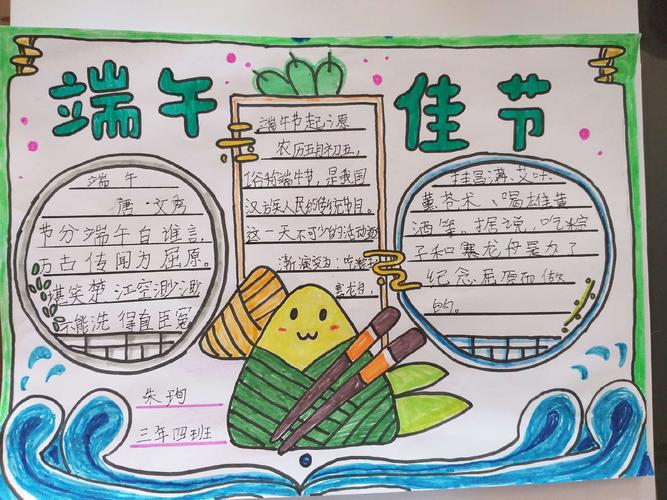 端午佳节
端午
唐·文秀
节分端午自谁言,
万古传闻为屈原。
堪笑楚江空渺渺
不能洗得直臣冤
端午节起源
农历五月初五,
俗称端午节,是我国
汉族人民的传统节日。
这一天不可少的活动逐
渐演变为:吃粽子
赛龙舟,
挂菖蒲、艾叶、
薰苍术、喝雄黄
酒等。据说,吃粽
子和赛龙舟是为了
纪念屈原而做
的。
朱珣
三年四班